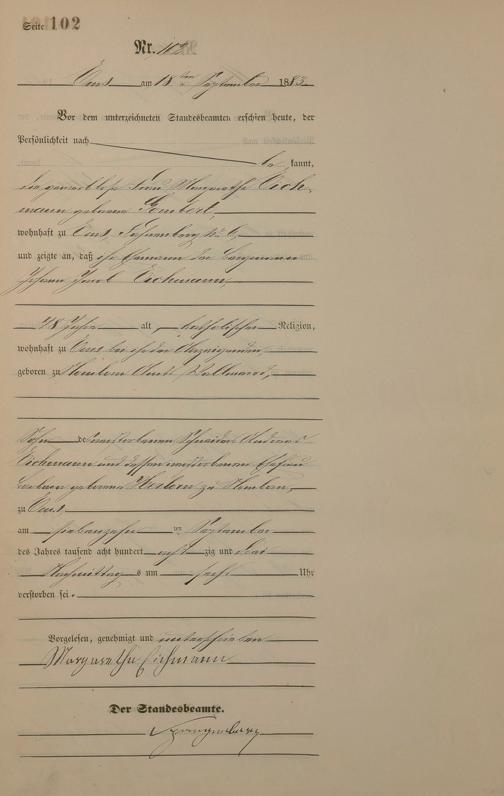 Seite 102
Nr. 102
Ems am 18ten September 1883
Vor dem unterzeichneten Standesbeamten erschien heute, der
Persönlichkeit nach
be kannt,
die gewerblose Frau Margarethe Eich-
mann geborene Gombert,
wohnhaft zu Ems, No 6,
und zeigte an, daß ihr Ehemann der Bergmann
Johann Jacob Eichmann,
48 Jahre alt, katholischer Religion,
wohnhaft zu Ems bei ihr der Anzeigenden,
geboren zu Amts Wallmerod,
Sohn des verstorbenen Schneiders Andreas
Eichmann und dessen verstorbenen Ehefrau
geborene zu
zu Ems,
am siebenzehn ten September
des Jahres tausend acht hundert acht zig und drei
Nachmittag s um sechs Uhr
verstorben sei.
Vorgelesen, genehmigt und unterschrieben
Margarethe Eichmann
Der Standesbeamte.